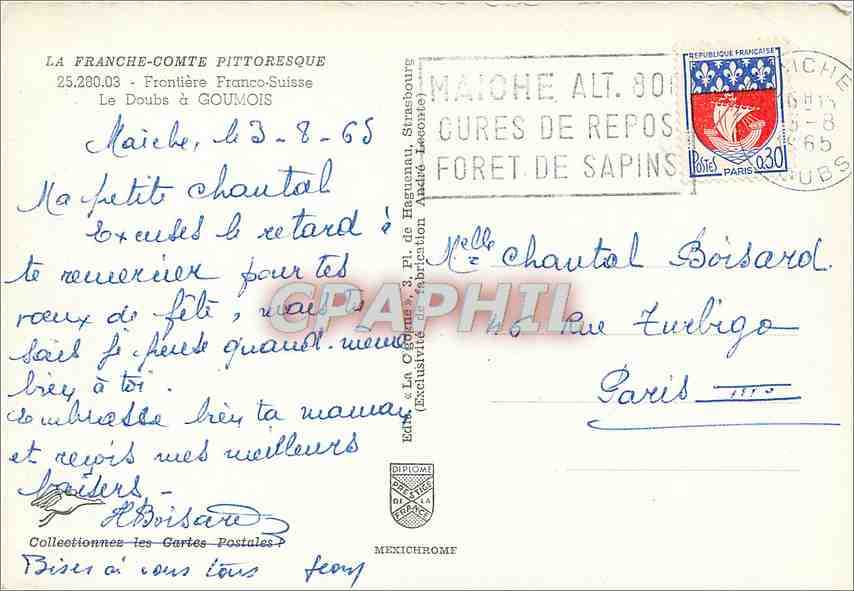 LA FRANCHE-COMTE PITTORESQUE
25.280.03 - Frontière Franco-Suisse
Le Doubs à GOUMOIS
Maiche, le 3-8-65
Ma petite Chantal
Excuses le retard à
te remercier pour tes
vœux de fête, mais tu
sais je pense quand-même
bien à toi.
Embrasse bien ta maman
et reçois mes meilleurs
baisers -
H Boisard
Collectionnez les Cartes Postales !
Bises à vous tous
Edit. « La Cigogne », 3, Pl. de Haguenau, Strasbourg
(Exclusivité de fabrication André Leconte)
MAICHE ALT. 80
CURES DE REPOS
FORET DE SAPINS
REPUBLIQUE FRANÇAISE
POSTES
PARIS
0,30
AICHE
-8
65
UBS
Melle Chantal Boisard
46 Rue Turbigo
Paris III°
CPAPHIL
DIPLOME
PRESTIGE
DE LA
FRANCE
MEXICHROME